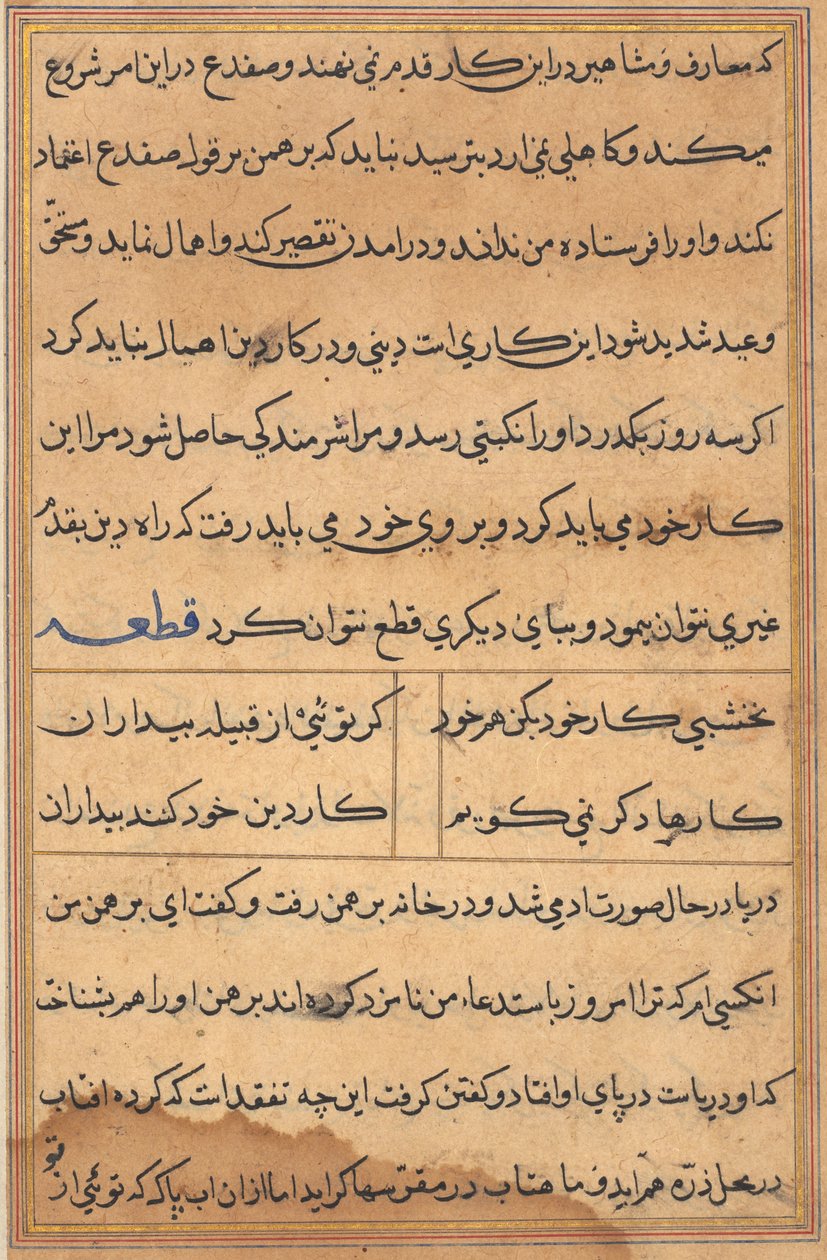 که معارف و مشاهیر در این کار قدم نمی نهند و صفدع در این امر شروع
میکند و کاهلی نمی ارد بترسید نباید که برهمن بر قول صفدع اعتماد
نکند و او را فرستاده من نداند و در امدن تقصیر کند و اهمال نماید و مستحق
وعید شدید شود این کاری است دینی و در کار دین اهمال نباید کرد
اکر سه روز بکذرد او را نکبتی رسد و مرا شرمندکی حاصل شود مرا این
کار خود می باید کرد و بروی خود می باید رفت که راه دین بقدم
غیری نتوان پیمود و بپای دیکری قطع نتوان کرد قطعه
نخشبی کار خود بکن هم خود
کر توئی از قبیله بیداران
کارها دکر نمی کویم
کار دین خود کنند بیداران
دریا در حال صورت ادمی شد و در خانه برهمن رفت و کفت ای برهمن من
انکسی ام که ترا امروز باستدعاء من نامزد کرده اند برهمن او را هم بشناخت
که او دریاست در پای او افتاد و کفتن کرفت این چه تفقد است که کرده افتاب
در محل ذره هم اید و ماهتاب در مقر سها کراید اما از ان اب پاک که توئی از تو